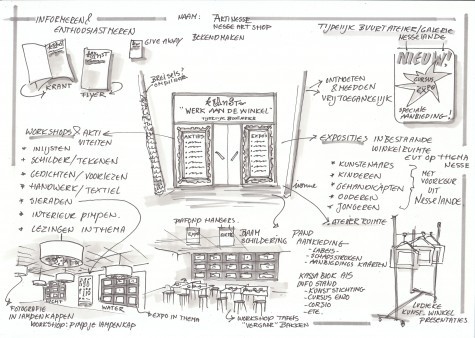 INFORMEREN &
ENTHOUSIASTMEREN
NAAM: ARTINESSE
NESSE ART SHOP
BEKENDMAKEN
TIJDELIJK BUURT ATELIER/GALERIE
NESSELANDE
GIVE AWAY
KRANT
FLYER
NIEUW!
CURSUS
EXPO
SPECIALE
AANBIEDING!
"WERK AAN DE WINKEL"
TIJDELIJK
KTIES
EXPO
ONTMOETEN
& MEEDOEN
VRIJ TOEGANKELIJK
WORKSHOPS & AKTI
VITEITEN
* INLIJSTEN
+ SCHILDER/TEKENEN
* GEDICHTEN/VOORLEZEN
* HANDWERK/TEXTIEL
* SIERADEN
* INTERIEUR PIMPEN.
* LEZINGEN IN THEMA
EXPOSITIES IN BESTAANDE
WINKELRUIMTE
OP THEMA
NESSE
* KUNSTENAARS
* KINDEREN
* GEHANDICAPTEN
* OUDEREN
* JONGEREN
MET
VOORKEUR
UIT
NESSELANDE
ATELIER RUIMTE
PLAFOND HANGERS
RAAM
SCHILDERING
PAND
AANKLEDING
- LABELS
- SCHAPSTROKEN
- AANBIEDINGS KAARTEN
KASSA BLOK ALS
INFO STAND
- KUNSTSTICHTING
- CURSUS END
- CORSJO
- ETC.
WATER
EXPO IN THEMA
FOTOGRAFIE
IN LAMPENKAPPEN
WORKSHOP: PIMP JE LAMPENKAP
WORKSHOP TAFELS
"VERGAAR" BAKKEN
LUDIEKE
KUNST WINKEL
PRESENTATIES